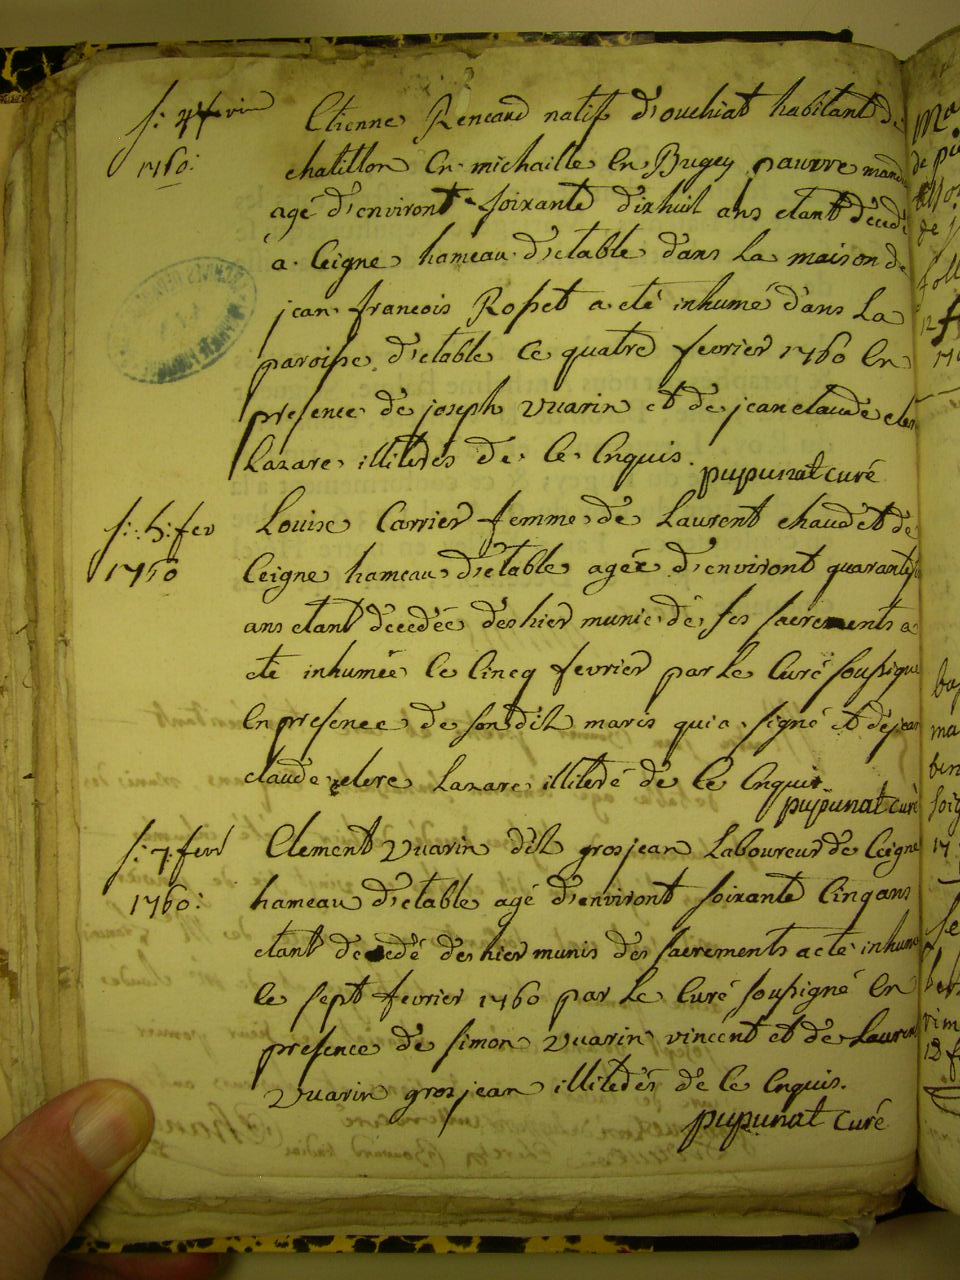 s: 4 fevrier
1760:
Etienne Rencard natif d'ouchiat habitant de
chatillon en michaille en Bugey pauvre
agé d'environt soixante dixhuit ans etant decedé
a Ceigne hameau d'etable dans la maison de
jean francois Rosset a eté inhumé dans la
paroisse d'etable ce quatre fevrier 1760 en
presence de joseph vuarin et de jean claude
Lazare illiterés de ce Enquis.
pupunat curé
s: 5: fev
1760
Louise Carrier femme de Laurent chaudet de
Ceigne hameau d'etable agée d'environt quarante
ans etant decedée deshier munie de ses sacrements a
eté inhumée le Cinq fevrier par le Curé soussigné
En presence de son dit maris qui a signé et de jean
claude clerc Lazare illiteré de ce Enquis.
pupunat curé
s: 7: fevr
1760:
Clement vuarin dit grosjean Laboureur de Ceigne
hameau d'etable agé d'environt soixante Cinq ans
etant decedé deshier munis des sacrements a eté inhumé
le sept fevrier 1760 par le Curé soussigné En
presence de simon vuarin vincent et de Laurent
vuarin grosjean illiterés de ce Enquis.
pupunat curé